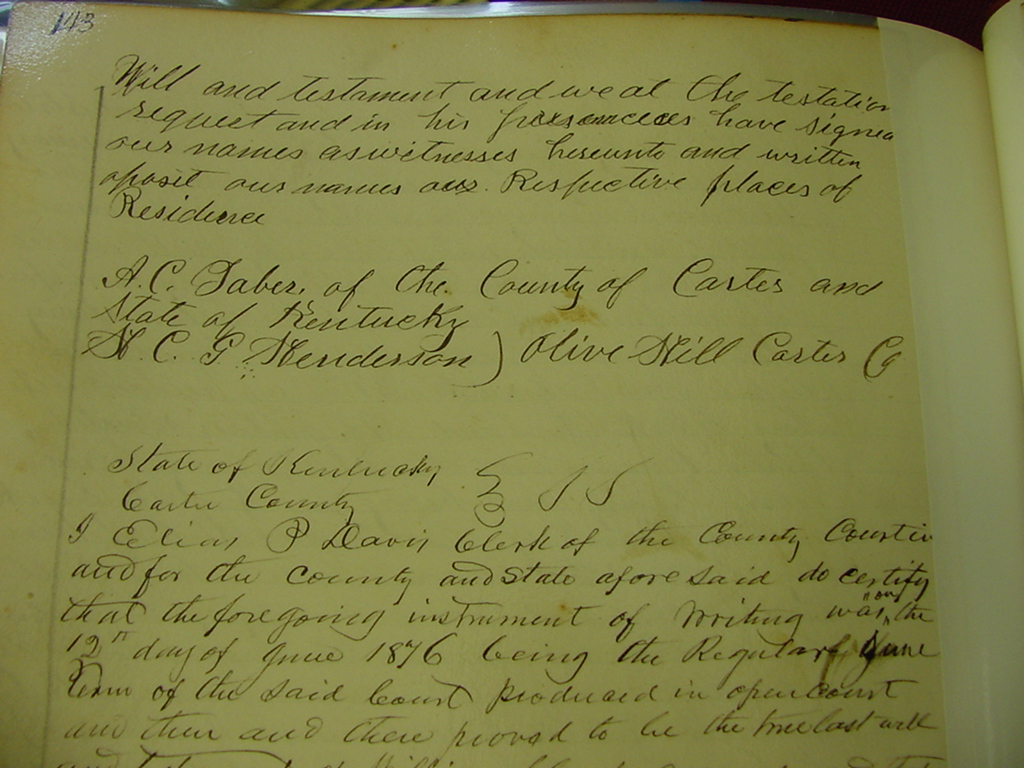 143
Will and testament and we at the testatin
request and in his presences have signed
our names as witnesses hereunto and written
oposit our names our Respective places of
Residence
A. C. Taber, of the County of Carter and
State of Kentucky
N. C. G Henderson ) Olive Hill Carter C
State of Kentucky
Carter County S S
I Elias P Davis Clerk of the County Court in
and for the County and State afore said do certify
that the foregoing instrument of Writing was on the
12th day of June 1876 being the Regular June
term of the said Court produced in open court
and then and there proved to be the true last will
and